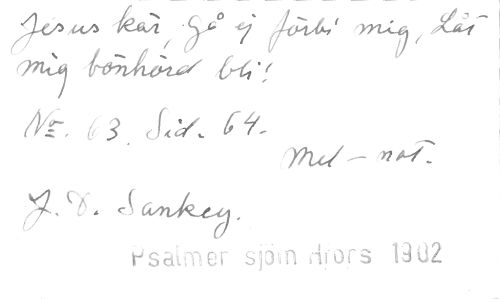 Jesus kär, gå ej förbi mig, Låt
mig bönhörd bli!
No. 63. Sid. 64.
Mel-not.
J. D. Sankey.
Psalmer sjöm Hfors 1902